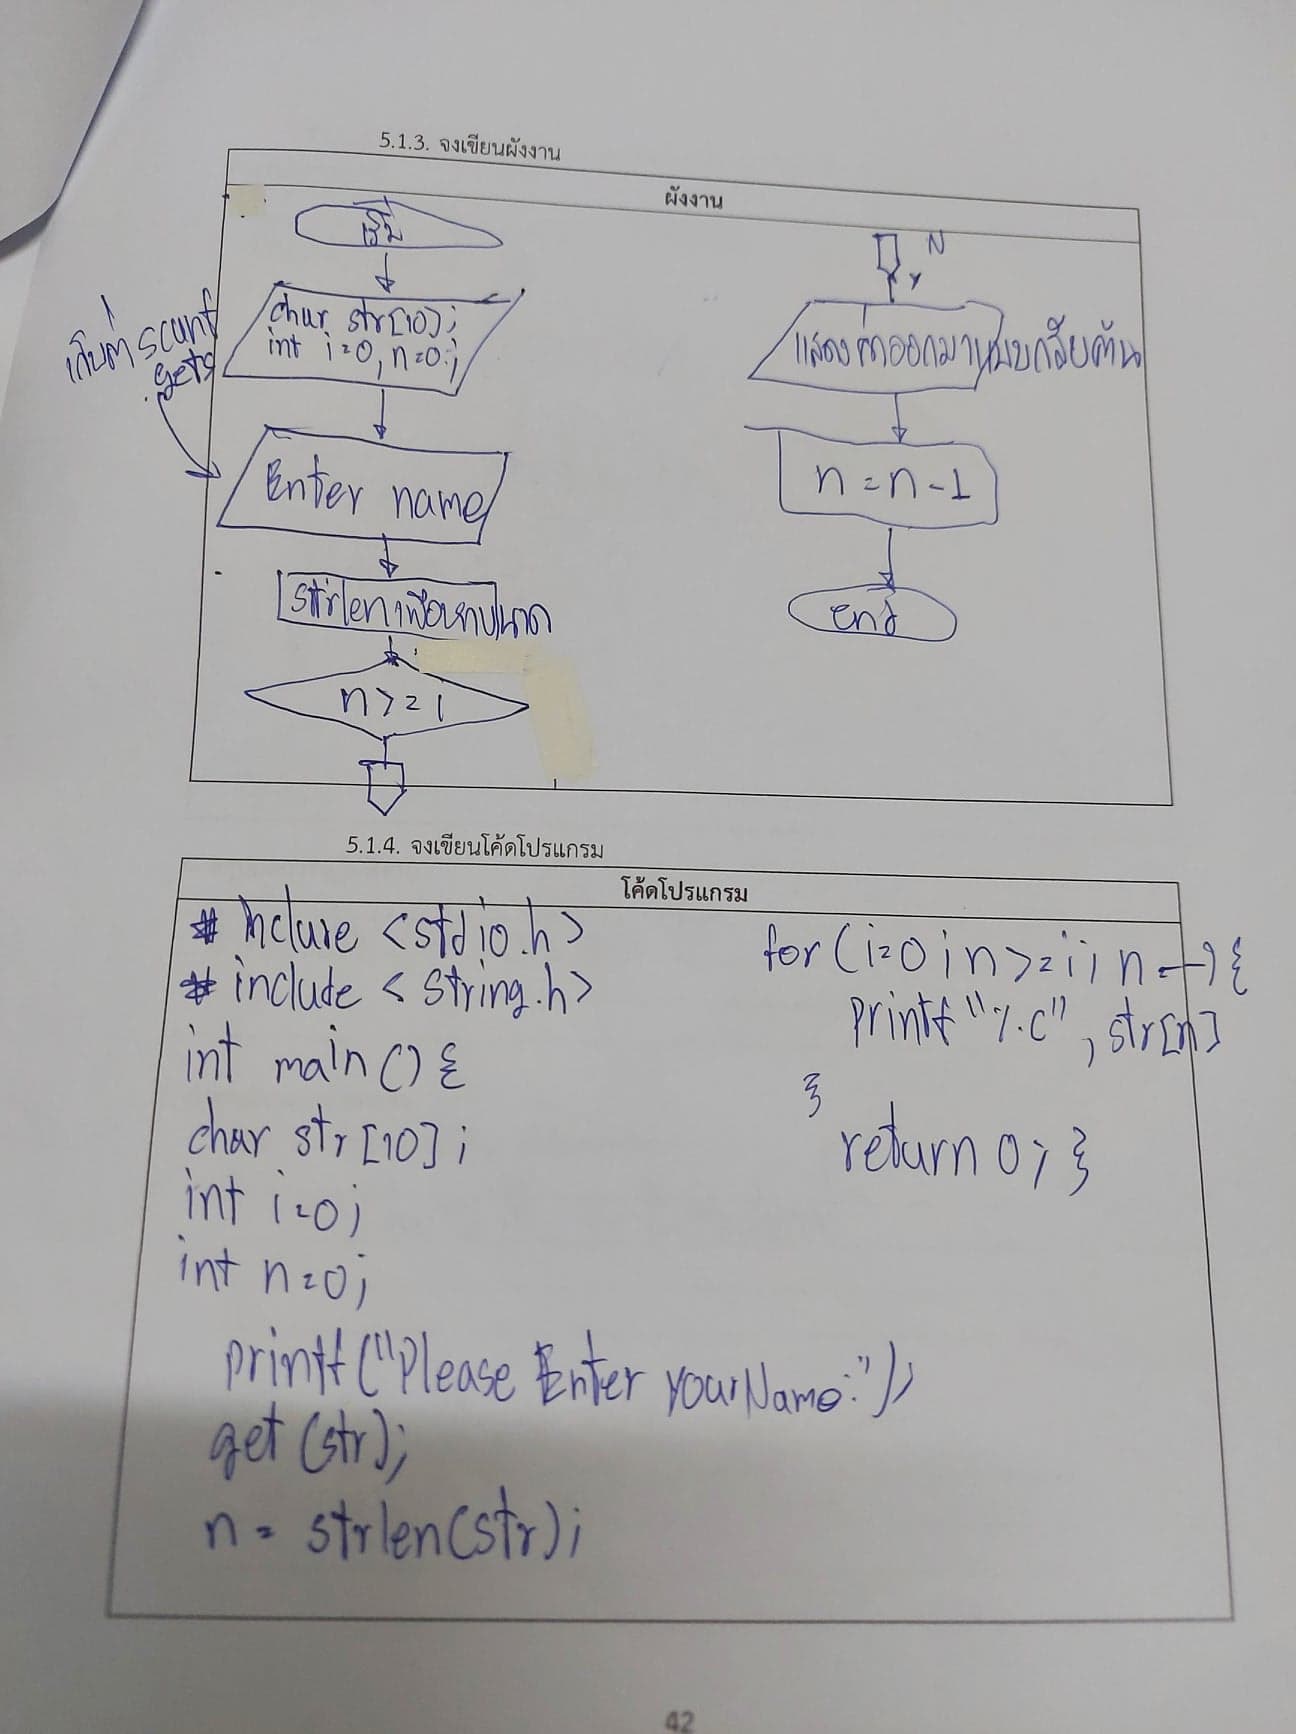 5.1.3. จงเขียนผังงาน
ผังงาน
เริ่ม
char str[10];
int i=0, n=0;
scanf
gets
Enter name
strlen เพื่อหาขนาด
n>=1
N
Y
แสดง ออกมาแบบกลับด้าน
n=n-1
end
5.1.4. จงเขียนโค้ดโปรแกรม
โค้ดโปรแกรม
# include <stdio.h>
# include < string.h>
int main() {
char str [10] ;
int i=0;
int n=0;
printf ("Please Enter yourName:");
get (str);
n = strlen(str);
for (i=0; n>=i; n--) {
printf "%c", str[n]
}
return 0; }
42